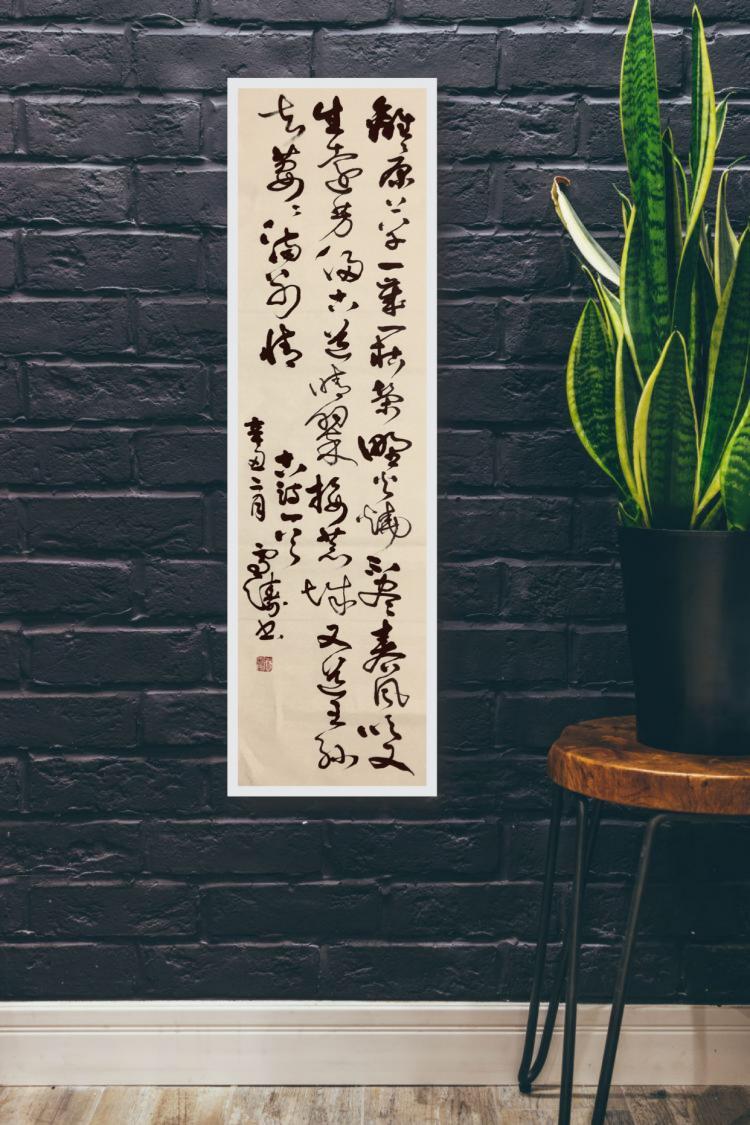 離〻原上草一歲一枯榮野火燒不盡春風吹又
生遠芳侵古道晴翠接荒城又送王孫
去萋〻滿別情
古詩一首
辛丑二月雪濤書